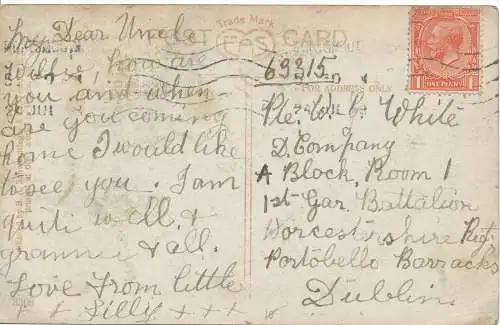 My Dear Uncle
Walse, how are
you and when
are you coming
home I would like
to see you. I am
quit well. &
grannie & all.
Love From little
x x Lilly x x x
POST CARD
Trade Mark
EAS
FOR ADDRESS ONLY
ONE PENNY
69315
Pte. W. G. White
D. Company
A Block, Room 1
1st Gar. Battalion
Worcestershire Regt
Portobello Barracks
Dublin.